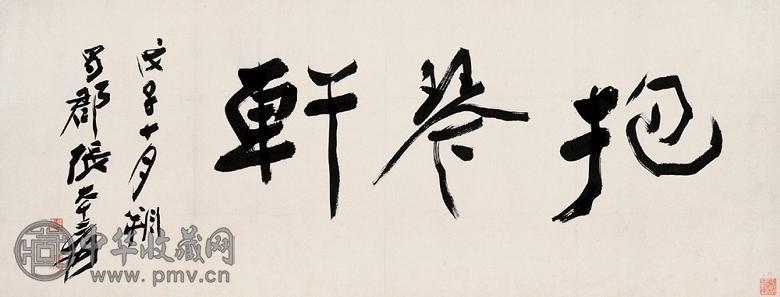 抱琴軒
戊子十月朔
蜀郡張大千爰
中华收藏网
www.pmv.cn